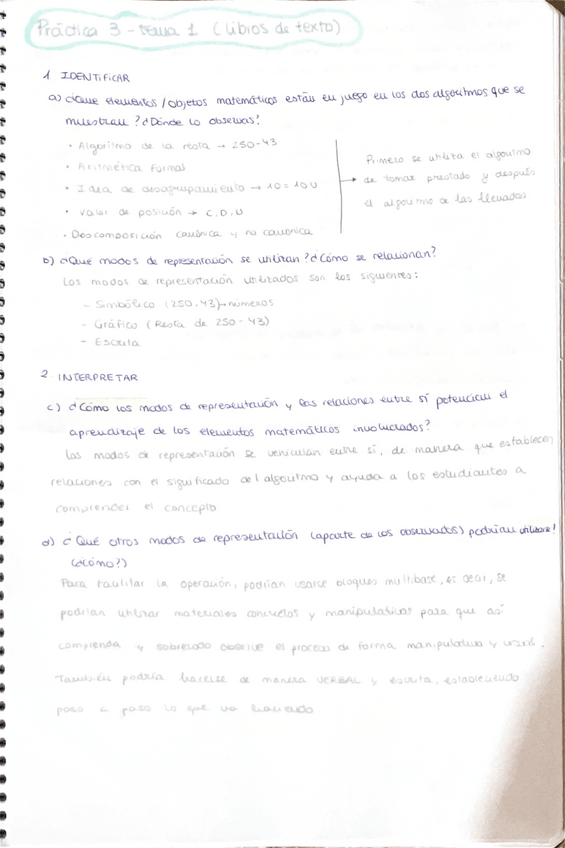 Práctica 3 - tema 1 (Libros de texto)
1 IDENTIFICAR
a) ¿Que elementos / objetos matemáticos están en juego en los dos algoritmos que se
muestran? ¿Dónde lo observas?
• Algoritmo de la resta → 250-43
• Aritmética formal
• Idea de desagrupamiento → 1D = 10U
• Valor de posición → C, D, U
• Descomposición canónica y no canónica
Primero se utiliza el algoritmo
→ de tomar prestado y después
el algoritmo de las llevadas
b) ¿Qué modos de representación se utilizan? ¿Cómo se relacionan?
Los modos de representación utilizados son los siguientes:
- Simbólico (250, 43) → números
- Gráfico (Resta de 250-43)
- Escrita
2. INTERPRETAR
c) ¿Cómo los modos de representación y las relaciones entre sí potencian el
aprendizaje de los elementos matemáticos involucrados?
Los modos de representación se vinculan entre sí, de manera que establecen
relaciones con el significado del algoritmo y ayuda a los estudiantes a
comprender el concepto
d) ¿Qué otros modos de representación (aparte de los observados) podrían utilizarse?
(¿cómo?)
Para facilitar la operación, podrían usarse bloques multibase, es decir, se
podrían utilizar materiales concretos y manipulativos para que así
comprenda y sobretodo observe el proceso de forma manipulativa y visual.
También podría hacerse de manera VERBAL y escrita, estableciendo
paso a paso lo que va haciendo